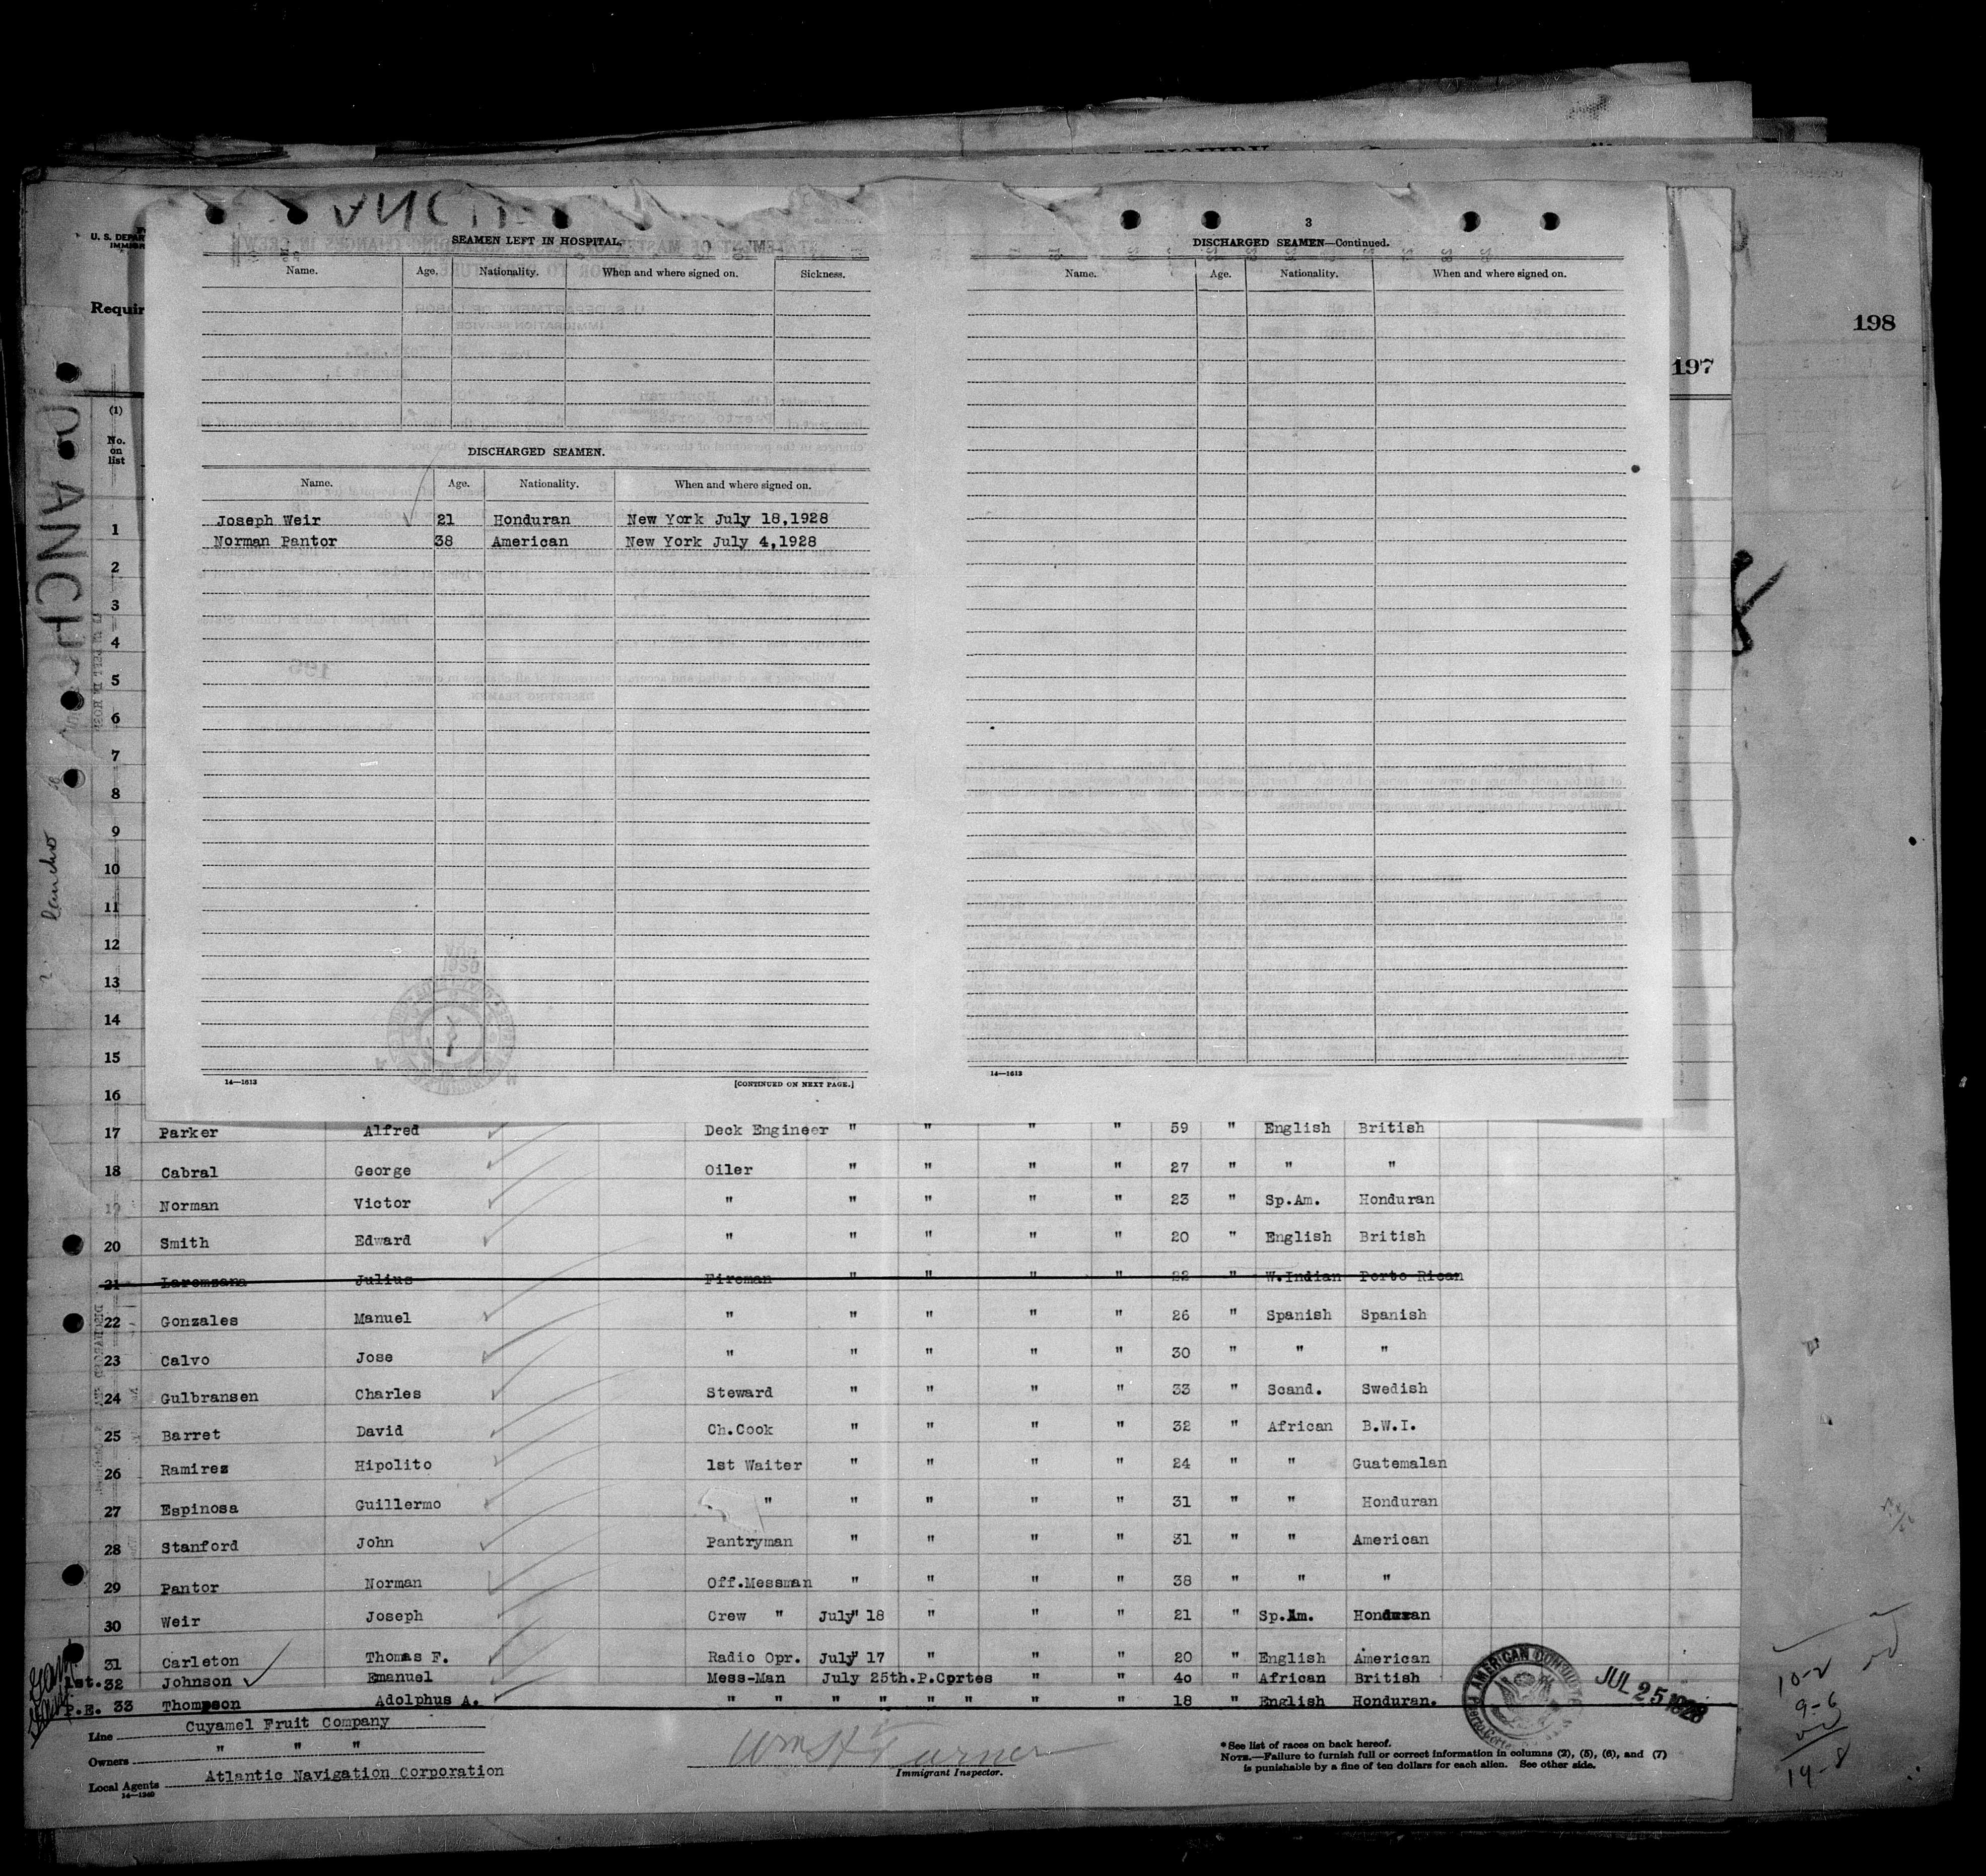 198
197
U. S. DEPAR
IMMIG
Requir
(1)
No.
on
list
SEAMEN LEFT IN HOSPITAL.
Name. Age. Nationality. When and where signed on. Sickness.
DISCHARGED SEAMEN.
Name. Age. Nationality. When and where signed on.
Joseph Weir 21 Honduran New York July 18,1928
Norman Pantor 38 American New York July 4,1928
14—1613 [CONTINUED ON NEXT PAGE.]
3
DISCHARGED SEAMEN—Continued.
Name. Age. Nationality. When and where signed on.
14—1613
1
2
3
4
5
6
7
8
9
10
11
12
13
14
15
16
17 Parker Alfred Deck Engineer " " " " 59 " English British
18 Cabral George Oiler " " " " 27 " " "
19 Norman Victor " " " " " 23 " Sp.Am. Honduran
20 Smith Edward " " " " " 20 " English British
21 Laremzana Julius Fireman " " " " 22 " W.Indian Porto Rican
22 Gonzales Manuel " " " " " 26 " Spanish Spanish
23 Calvo Jose " " " " " 30 " " "
24 Gulbransen Charles Steward " " " " 33 " Scand. Swedish
25 Barret David Ch.Cook " " " " 32 " African B.W.I.
26 Ramirez Hipolito 1st Waiter " " " " 24 " " Guatemalan
27 Espinosa Guillermo " " " " " 31 " " Honduran
28 Stanford John Pantryman " " " " 31 " " American
29 Pantor Norman Off.Messman " " " " 38 " " "
30 Weir Joseph Crew " July 18 " " " 21 " Sp.Am. Honduran
31 Carleton Thomas F. Radio Opr. July 17 " " " 20 " English American
1st. 32 Johnson Emanuel Mess-Man July 25th.P.Cortes " " 40 " African British
P.E. 33 Thompson Adolphus A. " " " " " " " " 18 " English Honduran.
Line Cuyamel Fruit Company
Owners " " "
Local Agents Atlantic Navigation Corporation
14—1240
Wm H Turner
Immigrant Inspector.
* See list of races on back hereof.
NOTE.—Failure to furnish full or correct information in columns (2), (5), (6), and (7)
is punishable by a fine of ten dollars for each alien. See other side.
AMERICAN CONSUL
JUL 25 1928
10-2
9-6
19-8